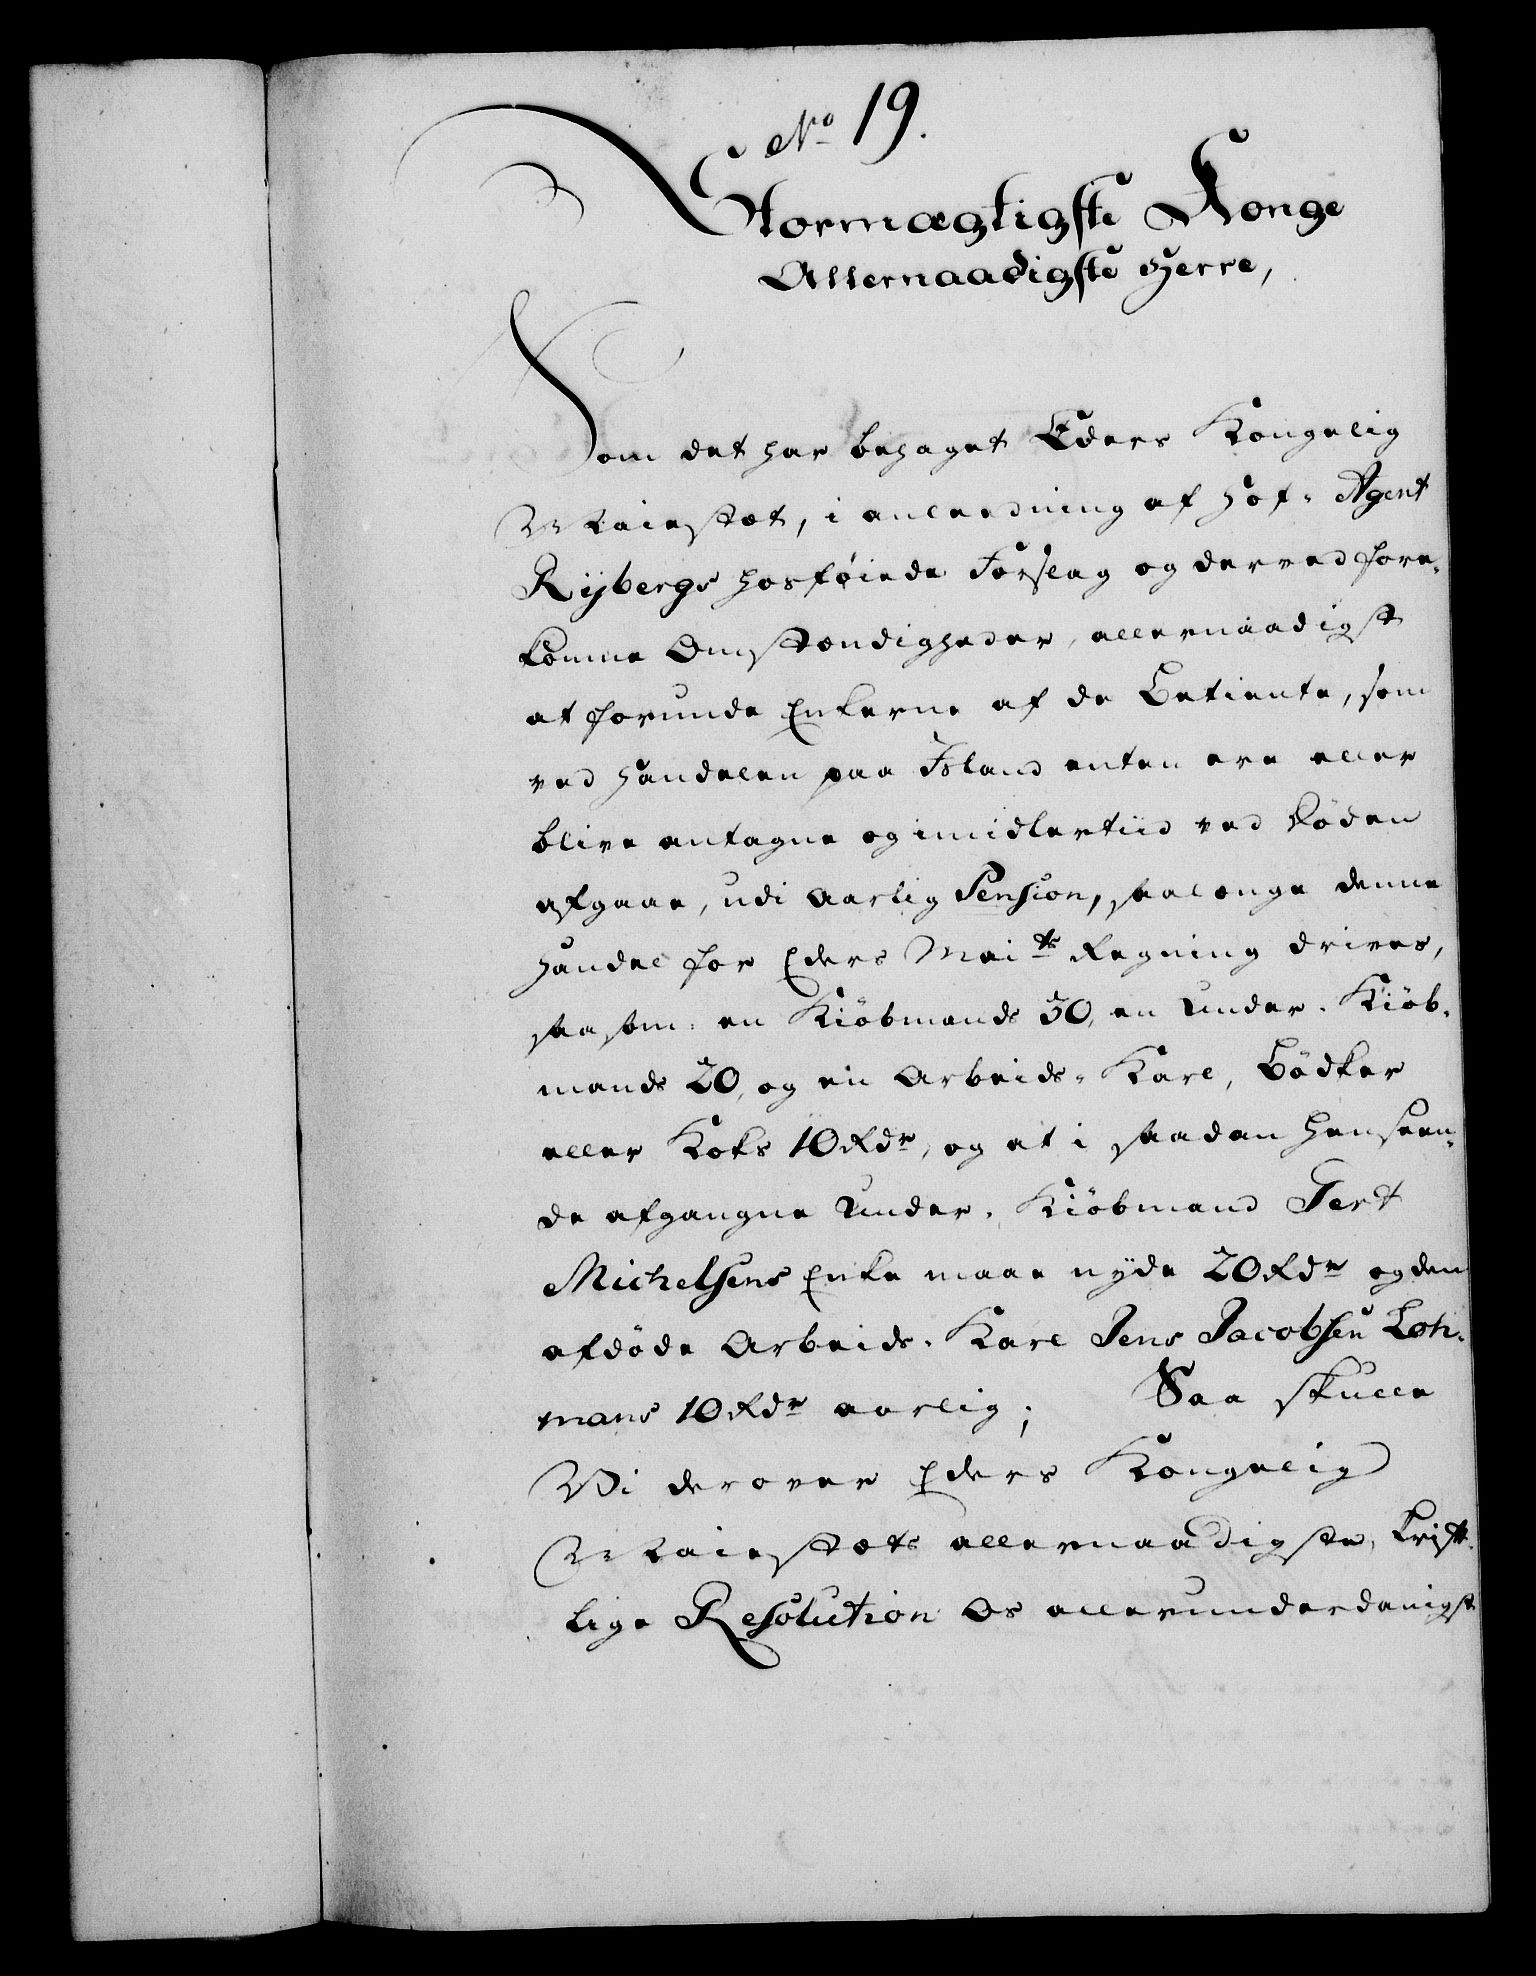 No 19.
Stormægtigste Konge
Allernaadigste Herre,
Som det har behaget Eders Kongelig
Maiestæt, i anleedning af Hof-Agent
Rÿbergs hosføiede Forslag og derved fore-
komne Omstændigheder, allernaadigst
at forunde Enkerne af de Betiente, som
ved Handelen paa Island enten ere eller
blive antagne og imidlertiid ved Døden
afgaae, udi aarlig Pension, saalænge denne
Handel for Eders Mai.ts Regning drives,
saasom: en Kiøbmands 30, en Under-Kiøb-
mands 20, og en Arbeids-Karl, Bødker
eller Koks 10 Rdr, og at i saadan Henseen-
de afgangne Under-Kiøbmand Gert
Michelsens Enke maae nyde 20 Rdr og den
afdøde Arbeids-Karl Jens Jacobsen Loh-
mans 10 Rdr aarlig; Saa skulle
Vi derover Eders Kongelig
Maiestæts allernaadigste, skrift-
lige Resolution Os allerunderdanigst